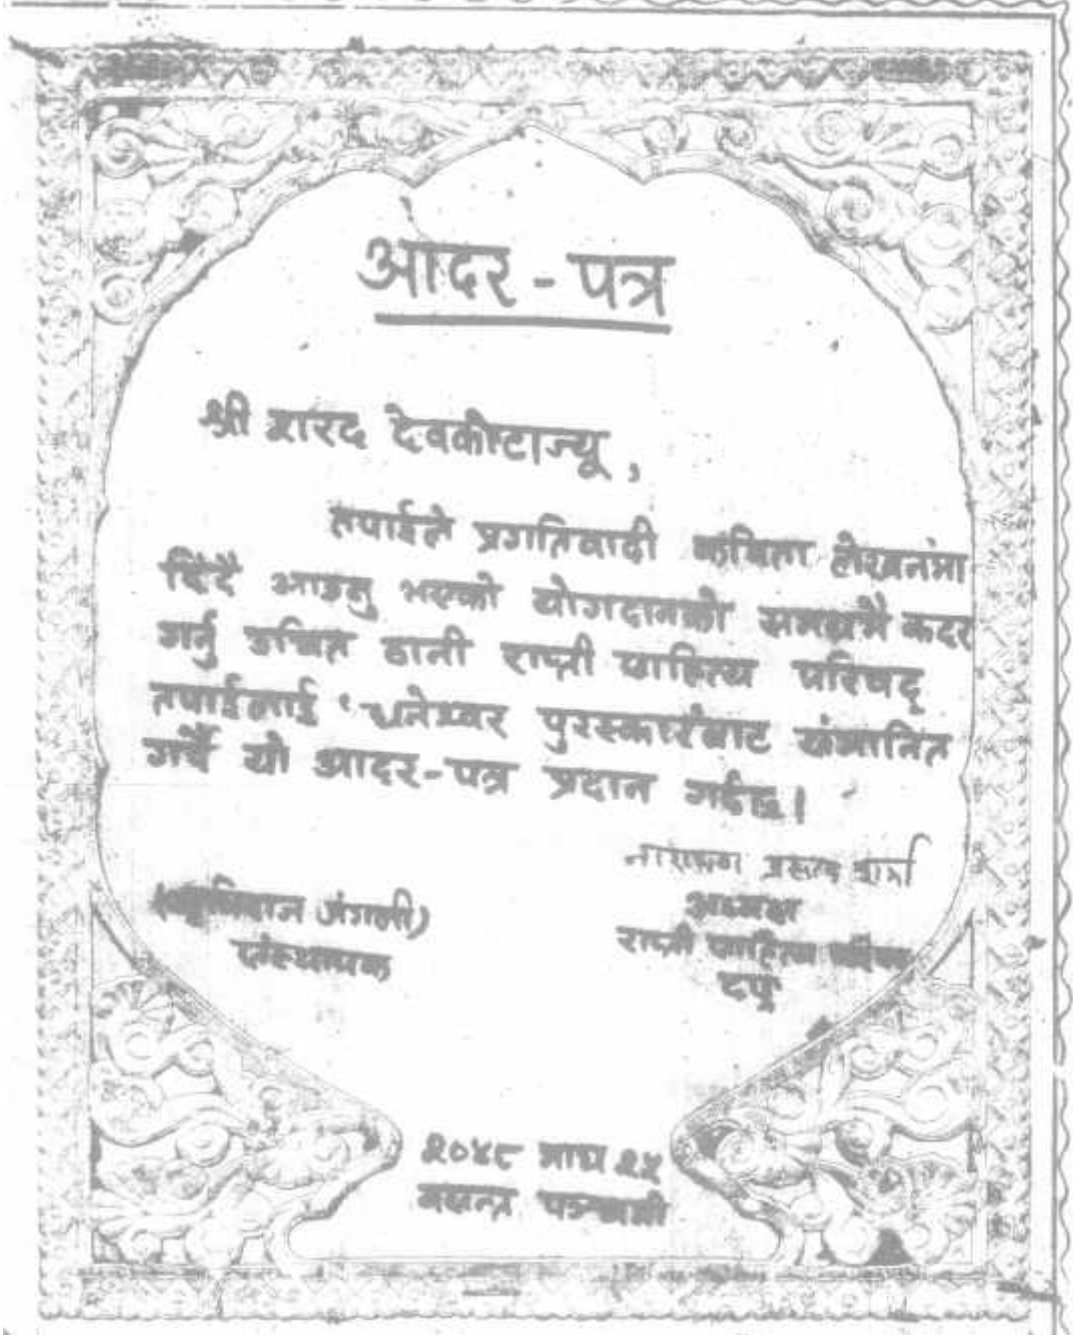 आदर - पत्र
श्री शारद देवकोटाज्यू ,
तपाईले प्रगतिवादी कविता लेखनमा
दिंदै आउनु भएको योगदानको समग्रमै कदर
गर्नु उचित ठानी राप्ती साहित्य परिषद्
तपाईलाई 'धनेश्वर पुरस्कार'बाट संमानित
गर्दै यो आदर-पत्र प्रदान गर्दछ।
नारायण प्रसाद शर्मा
जंगली)
अध्यक्ष
संस्थापक
राप्ती साहित्य परिषद
२०४८ माघ २५
वसन्त पञ्चमी